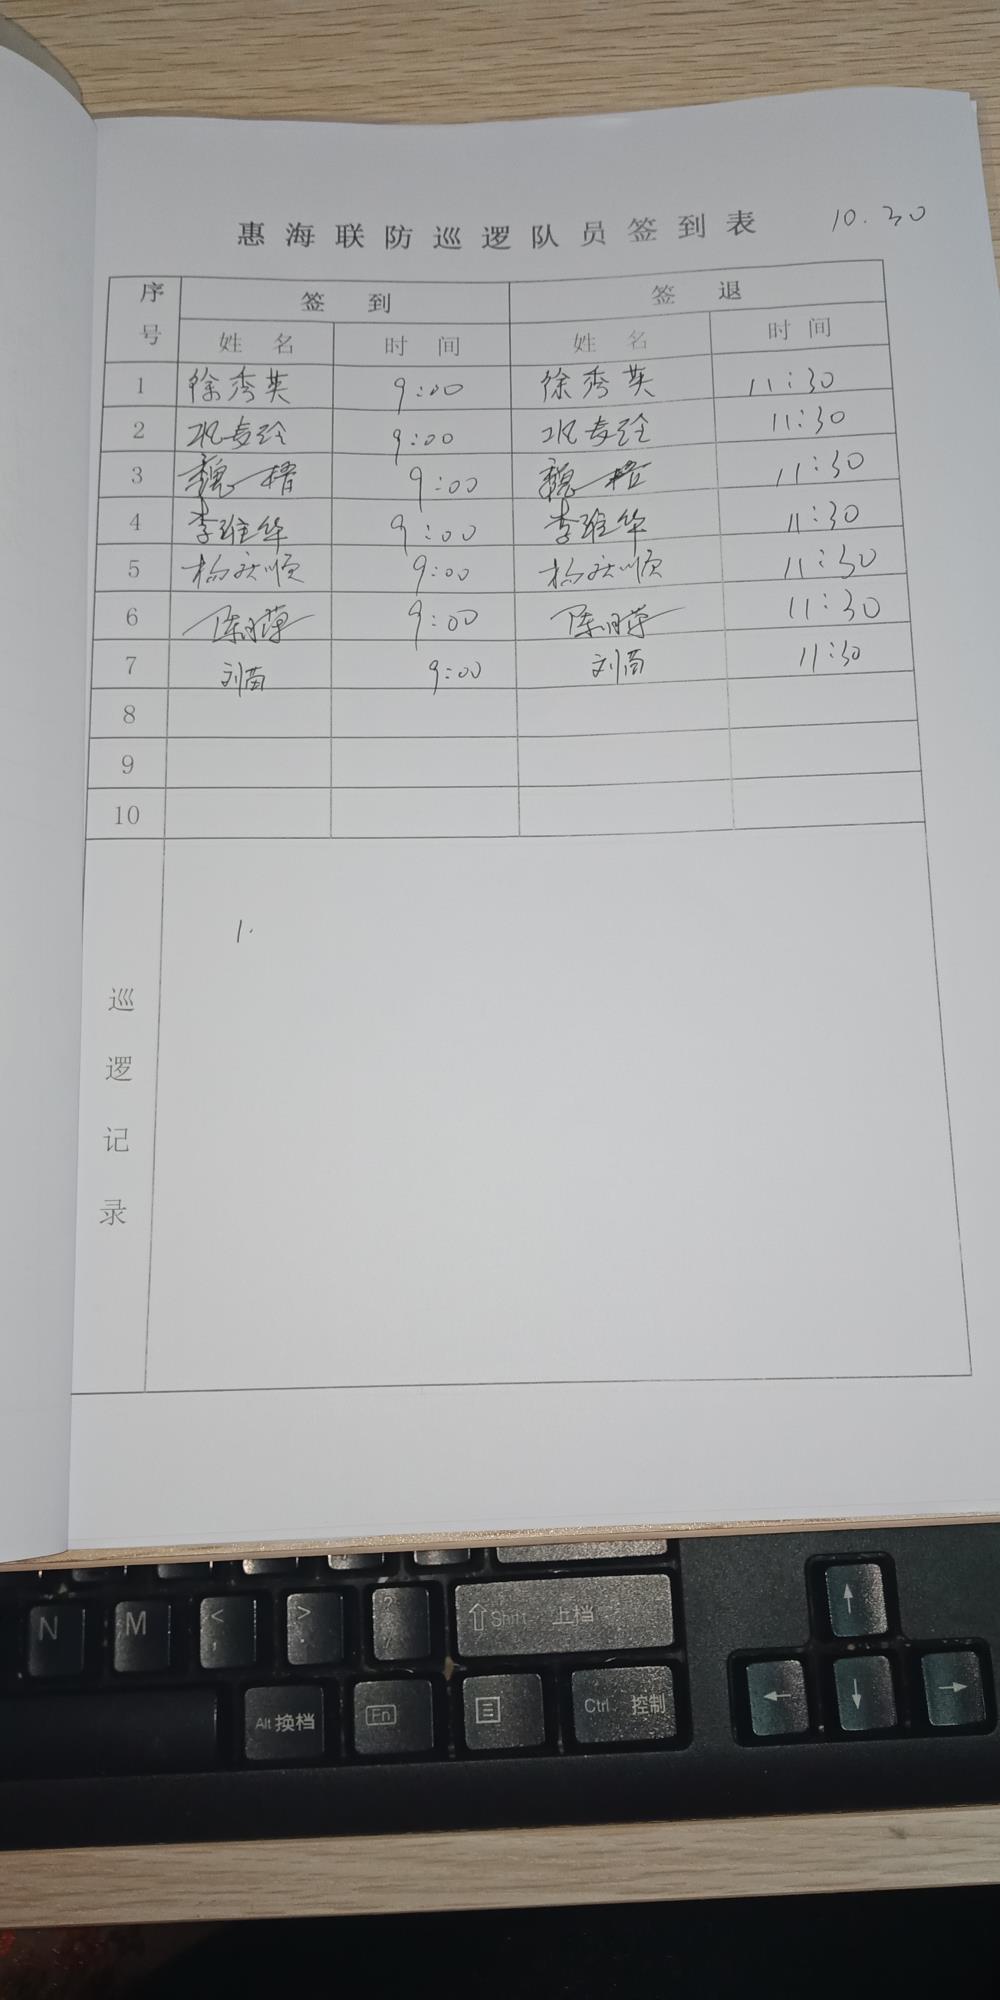 惠海联防巡逻队员签到表 10.30
序号 签到 签退
姓名 时间 姓名 时间
1 徐秀英 9:00 徐秀英 11:30
2 9:00 11:30
3 魏 9:00 魏 11:30
4 李维华 9:00 李维华 11:30
5 杨庆顺 9:00 杨庆顺 11:30
6 陈 9:00 陈 11:30
7 刘苗 9:00 刘苗 11:30
8
9
10
巡逻记录
1.
N M < , > . ? / Shift 上档 ↑
Alt 换档 Fn Ctrl 控制 ← ↓ →